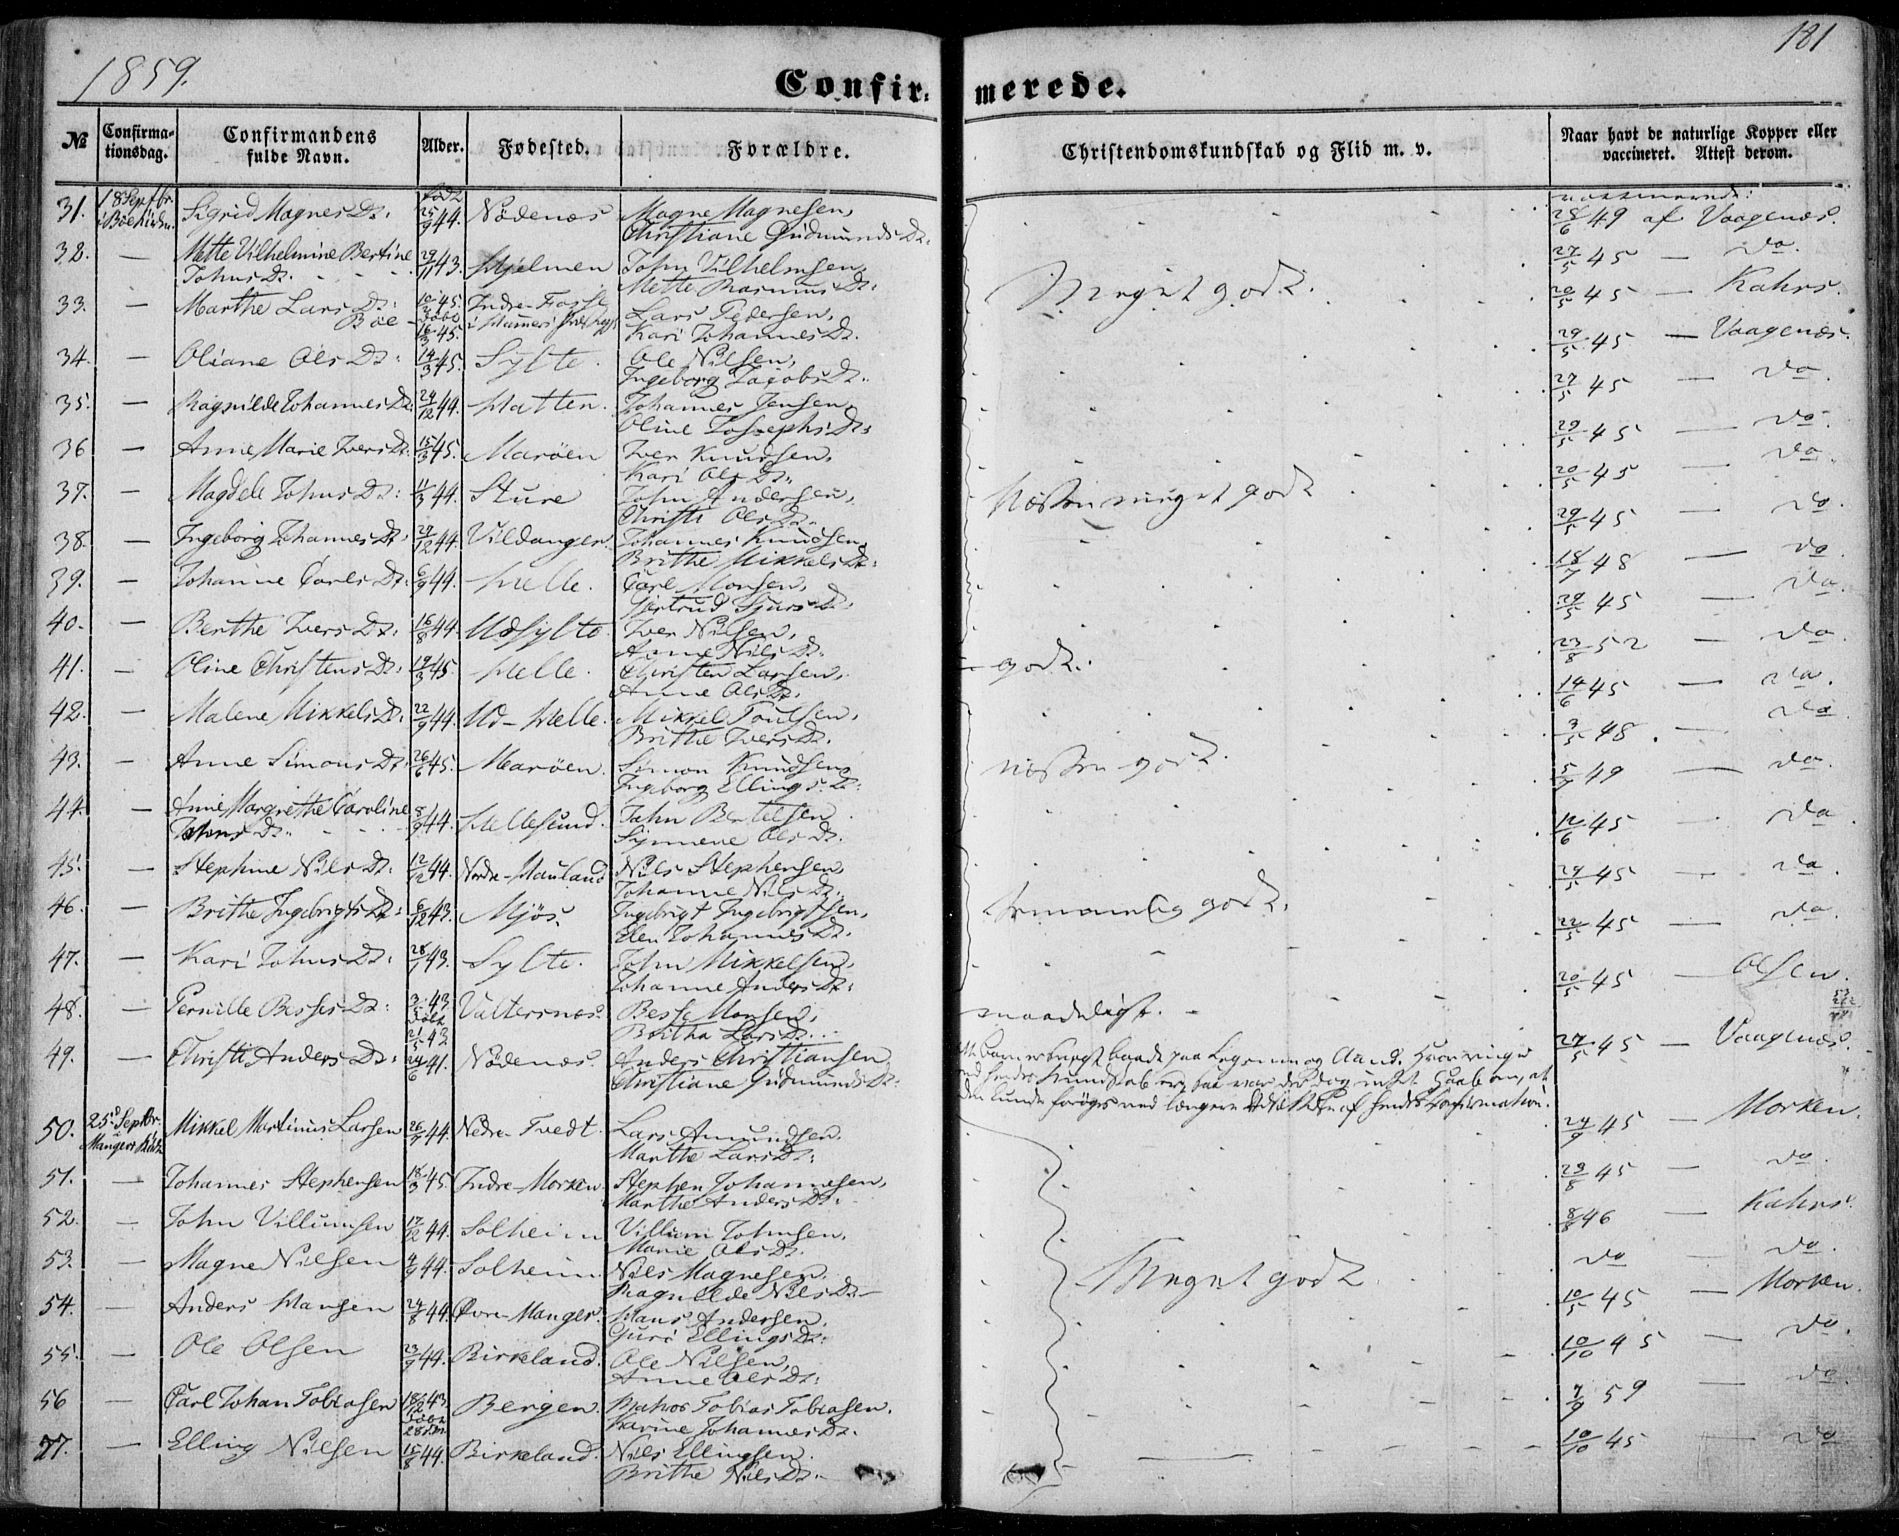 1859.
181
Confir: merede.
№ Confirma-tionsdag. Confirmandens fulde Navn. Alder. Fødested. Forældre. Christendomskundskab og Flid m. v. Naar havt de naturlige Kopper eller vaccineret. Attest derom.
31. 18 Septbr Sigrid Magnes Dt: født 25/9 44. Nødenæs Magne Magnesen, Christiane Gudmunds Dt: 28/6 49 af Vaagenæs.
32. — Mette Vilhelmine Bertine Johns Dt. 29/11 43. Hjelmen John Vilhelmsen, Mette Rasmus Dt: Meget godt. 27/5 45 — do.
33. — Marthe Lars Dt: Bøe 45. døbt 16/3 45. Indre-Fosse i Hammers Lars Pedersen, Kari Johannes Dt. 20/5 45 — Kahrs.
34. — Oliane Ols Dt: 14/3 45. Sylte. Ole Nilsen, Ingeborg Jacobs Dt. 29/5 45 — Vaagenæs.
35. — Ragnilde Johannes Dt: 24/12 44. Hatten. Johannes Jensen, Oline Josephs Dt: 27/5 45 — do.
36 — Anne Marie Ivers Dt: 15/3 45. Marøen Iver Knudsen, Kari Ols Dt: 29/5 45 — do
37. — Magdele Johns Dt: 11/3 44. Sture John Andersen, Christi Ols Dt. Næsten meget godt 20/5 45 — do.
38. — Ingeborg Johannes Dt. 29/12 44. Vildanger. Johannes Knudsen, Brithe Mikkels Dt: 29/5 45 — do.
39. — Johanne Carls Dt: 6/9 44. Helle. Carl Monsen, Gjertrud Sjurs Dt. 18/7 48 — do
40. — Berthe Ivers Dt: 16/8 44. Udsylte. Iver Nilsen, Anne Nils Dt. 29/5 45 — do.
41. — Oline Christens Dt: 19/3 45. Helle. Christen Larsen, Anne Ols Dt. godt. 23/8 52 — do.
42. — Malene Mikkels Dt: 22/9 44. Ud-Helle. Mikkel Poulsen, Brithe Ivers Dt. 14/6 45 — do.
43. — Anne Simons Dt: 26/6 45. Marøen. Simon Knudsen, Ingeborg Ellings Dt: næsten godt. 3/5 48. — do
44. — Anne Margrethe Caroline Johns Dt. 8/9 44. Hellesund. John Bertelsen Synneve Ols Dt. 5/7 49 — do.
45. — Stephine Nils Dt: 12/12 44. Nordre-Hauland Nils Stephensen, Johanne Nils Dt. 12/6 45 — do.
46. — Brithe Ingebrigts Dt: 6/12 43. Mjøs. Ingebrigt Ingebrigtsen, Elen Johannes Dt. temmelig godt. 29/5 45 — do
47. — Kari Johns Dt: 28/1 43. Sylte. John Mikkelsen, Johanne Anders Dt: 22/5 45 — do.
48. — Pernille Besses Dt: 43 døbt 21/5 43 Valtersnæs. Besse Monsen, Britha Lars Dt. maadeligt. 20/5 45 — Olsen.
49. — Christi Anders Dt: 41. Nødenæs. Anders Christiansen, Christiane Gudmunds Dt: baade paa Legeme og Aand. Hvor ringe end hendes Kundskab er, saa var der dog intet Haab om, at den kunde forøges ved længere Udsættelse af hendes Confirmation. 27/5 45 — Vaagenæs.
50. 25d Septbr. Mangers Kirke Mikkel Martinus Larsen 26/7 44. Nedre-Tvedt. Lars Amundsen, Marthe Lars Dt: 24/9 45 — Morken.
51. — Johannes Stephensen 18/3 45. Indre-Morken. Stephen Johannesen, Marthe Anders Dt: 29/8 45 — do.
52. — John Villumsen 17/12 44. Solheim Villum Johnsen, Marie Ols Dt. 8/8 46 — Kahrs.
53. — Magne Nilsen 4/9 44. Solheim. Nils Magnesen, Ragnilde Nils Dt Meget godt. do — do.
54. — Anders Hansen 24/8 44. Øvre-Manger. Hans Andersen, Guro Ellings Dt: 10/5 45 — Morken.
55. — Ole Olsen 23/9 44. Birkeland. Ole Nilsen, Anne Ols Dt: 10/10 45 — do.
56 — Carl Johan Tobiasen 18/12 43. døbt Bergen. Tobias Tobiasen. Karine Johannes Dt. 7/9 59 — do.
77. — Elling Nilsen 15/8 44. Birkeland. Nils Ellingsen. Brithe Nils Dt. 10/10 45 — do